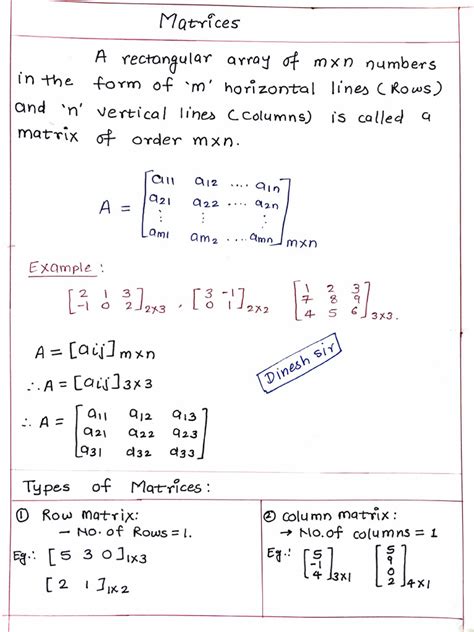 Matrices
A rectangular array of mxn numbers
in the form of 'm' horizontal lines (Rows)
and 'n' vertical lines (Columns) is called a
matrix of order mxn.
A = [a11 a12 .... a1n
a21 a22 .... a2n
⋮ ⋮ ⋮
am1 am2 .... amn]mxn
Example :
[2 1 3
-1 0 2]2x3 , [3 -1
0 1]2x2 [1 2 3
7 8 9
4 5 6]3x3.
A = [aij]mxn
∴ A = [aij]3x3
∴ A = [a11 a12 a13
a21 a22 a23
a31 a32 a33]
Dinesh sir
Types of Matrices :
① Row matrix:
– No. of Rows = 1.
Eg.: [5 3 0]1x3
[2 1]1x2
② Column matrix:
→ No. of columns = 1
Eg.: [5
-1
4]3x1 [5
9
0
2]4x1